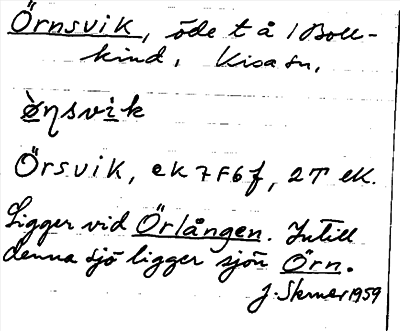 Örnsvik, öde t å 1 Boll-
kind, Kisa sn,
ö̀ṇsvik
Örsvik, ek 7F6f, 2T ek.
Ligger vid Örlången. Intill
denna sjö ligger sjön Örn.
J. Skruer 1959